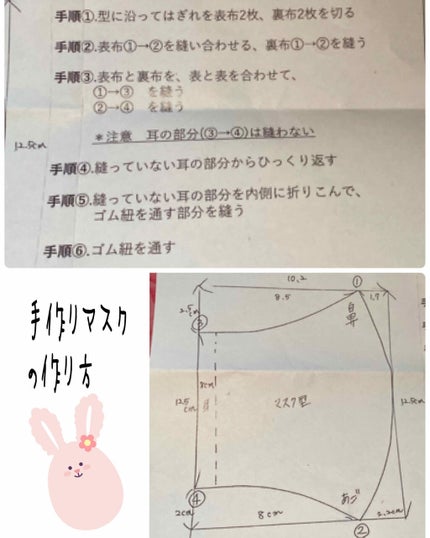 手順①.型に沿ってはぎれを表布2枚、裏布2枚を切る
手順②.表布①→②を縫い合わせる、裏布①→②を縫う
手順③.表布と裏布を、表と表を合わせて、
①→③ を縫う
②→④ を縫う
12.5cm
*注意 耳の部分(③→④)は縫わない
手順④.縫っていない耳の部分からひっくり返す
手順⑤.縫っていない耳の部分を内側に折りこんで、
ゴム紐を通す部分を縫う
手順⑥.ゴム紐を通す
手作りマスク
の作り方
10.2
①
8.5
1.7
2.5cm
鼻
③
8cm
12.5
cm
耳
マスク型
12.5cm
④
あご
2cm
8cm
2.2cm
②